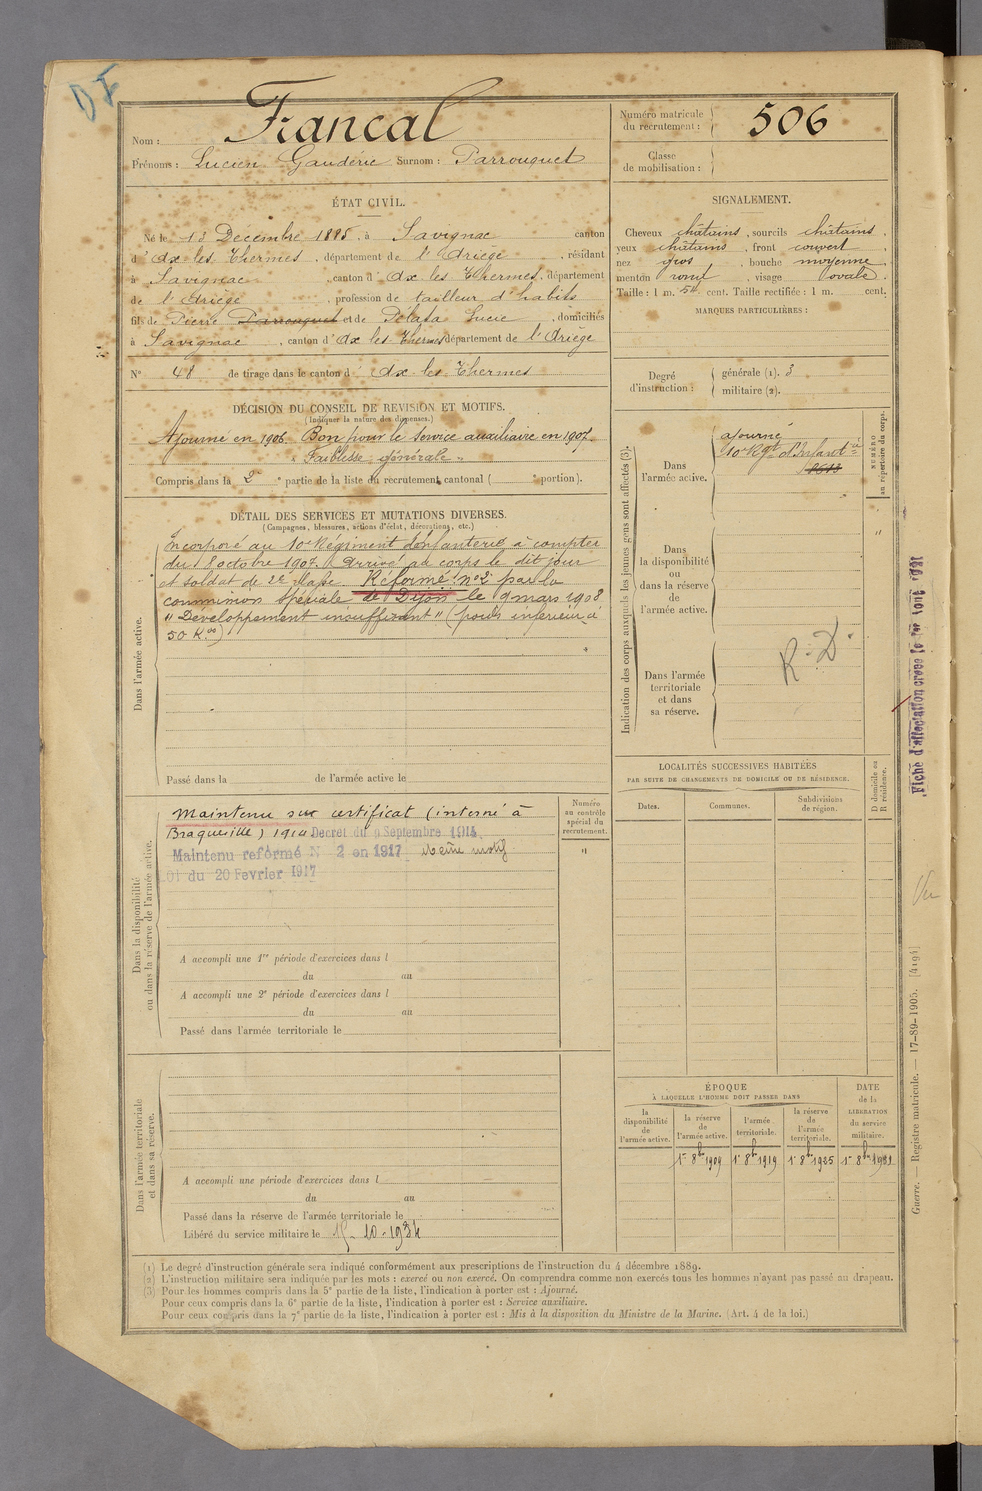 DF
Nom : Francal
Prénoms : Lucien Gaudérie Surnom : Parrouquet
Numéro matricule du recrutement : 506
Classe de mobilisation :
ÉTAT CIVIL.
Né le 13 Décembre 1885, à Savignac canton
d'Ax les Thermes, département de l'Ariège, résidant
à Savignac, canton d'Ax les Thermes, département
de l'Ariège, profession de tailleur d'habits
fils de Pierre Parrouquet et de Lucie, domiciliés
à Savignac, canton d'Ax les Thermes département de l'Ariège
N° 48 de tirage dans le canton d'Ax les Thermes
SIGNALEMENT.
Cheveux châtains, sourcils châtains,
yeux châtains, front couvert,
nez gros, bouche moyenne,
menton rond, visage ovale.
Taille : 1 m. 54 cent. Taille rectifiée : 1 m. cent.
MARQUES PARTICULIÈRES :
Degré d'instruction : générale (1). 3
militaire (2).
DÉCISION DU CONSEIL DE REVISION ET MOTIFS.
(Indiquer la nature des dispenses.)
Ajourné en 1906. Bon pour le service auxiliaire en 1907.
"Faiblesse générale"
Compris dans la 2e partie de la liste du recrutement cantonal ( portion).
DÉTAIL DES SERVICES ET MUTATIONS DIVERSES.
(Campagnes, blessures, actions d'éclat, décorations, etc.)
Dans l'armée active.
Incorporé au 10e Régiment d'infanterie à compter
du 8 octobre 1907. Arrivé au corps le dit jour
et soldat de 2e classe. Réformé n°2 par la
commission spéciale de Dijon le 9 mars 1908
"Développement insuffisant" (poids inférieur à
50 K.os)
Passé dans la de l'armée active le
Indication des corps auxquels les jeunes gens sont affectés (3).
Dans l'armée active.
ajourné
10e Rgt d'Infant.ie
NUMÉRO au répertoire du corps.
"
Dans la disponibilité ou dans la réserve de l'armée active.
Dans l'armée territoriale et dans sa réserve.
R. D.
Fiche d'affectation créée le 1er août 1921
Dans la disponibilité ou dans la réserve de l'armée active.
Numéro au contrôle spécial du recrutement.
"
Maintenu sur certificat (interné à
Braqueville) 1914 Decret du 9 Septembre 1914.
Maintenu reformé N° 2 en 1917 même motif
Loi du 20 Fevrier 1917
A accompli une 1re période d'exercices dans l
du au
A accompli une 2e période d'exercices dans l
du au
Passé dans l'armée territoriale le
LOCALITÉS SUCCESSIVES HABITÉES
PAR SUITE DE CHANGEMENTS DE DOMICILE OU DE RÉSIDENCE.
Dates. Communes. Subdivisions de région. D domicile ou R résidence.
Vu
Dans l'armée territoriale et dans sa réserve.
A accompli une période d'exercices dans l
du au
Passé dans la réserve de l'armée territoriale le
Libéré du service militaire le 15-10-1934
ÉPOQUE
À LAQUELLE L'HOMME DOIT PASSER DANS
DATE de la LIBÉRATION du service militaire.
la disponibilité de l'armée active. la réserve de l'armée active. l'armée territoriale. la réserve de l'armée territoriale.
1er 8bre 1909 1er 8bre 1919 1er 8bre 1925 1er 8bre 1931
Guerre. — Registre matricule. — 17-89-1905. [4194]
(1) Le degré d'instruction générale sera indiqué conformément aux prescriptions de l'instruction du 4 décembre 1889.
(2) L'instruction militaire sera indiquée par les mots : exercé ou non exercé. On comprendra comme non exercés tous les hommes n'ayant pas passé au drapeau.
(3) Pour les hommes compris dans la 5e partie de la liste, l'indication à porter est : Ajourné.
Pour ceux compris dans la 6e partie de la liste, l'indication à porter est : Service auxiliaire.
Pour ceux compris dans la 7e partie de la liste, l'indication à porter est : Mis à la disposition du Ministre de la Marine. (Art. 4 de la loi.)